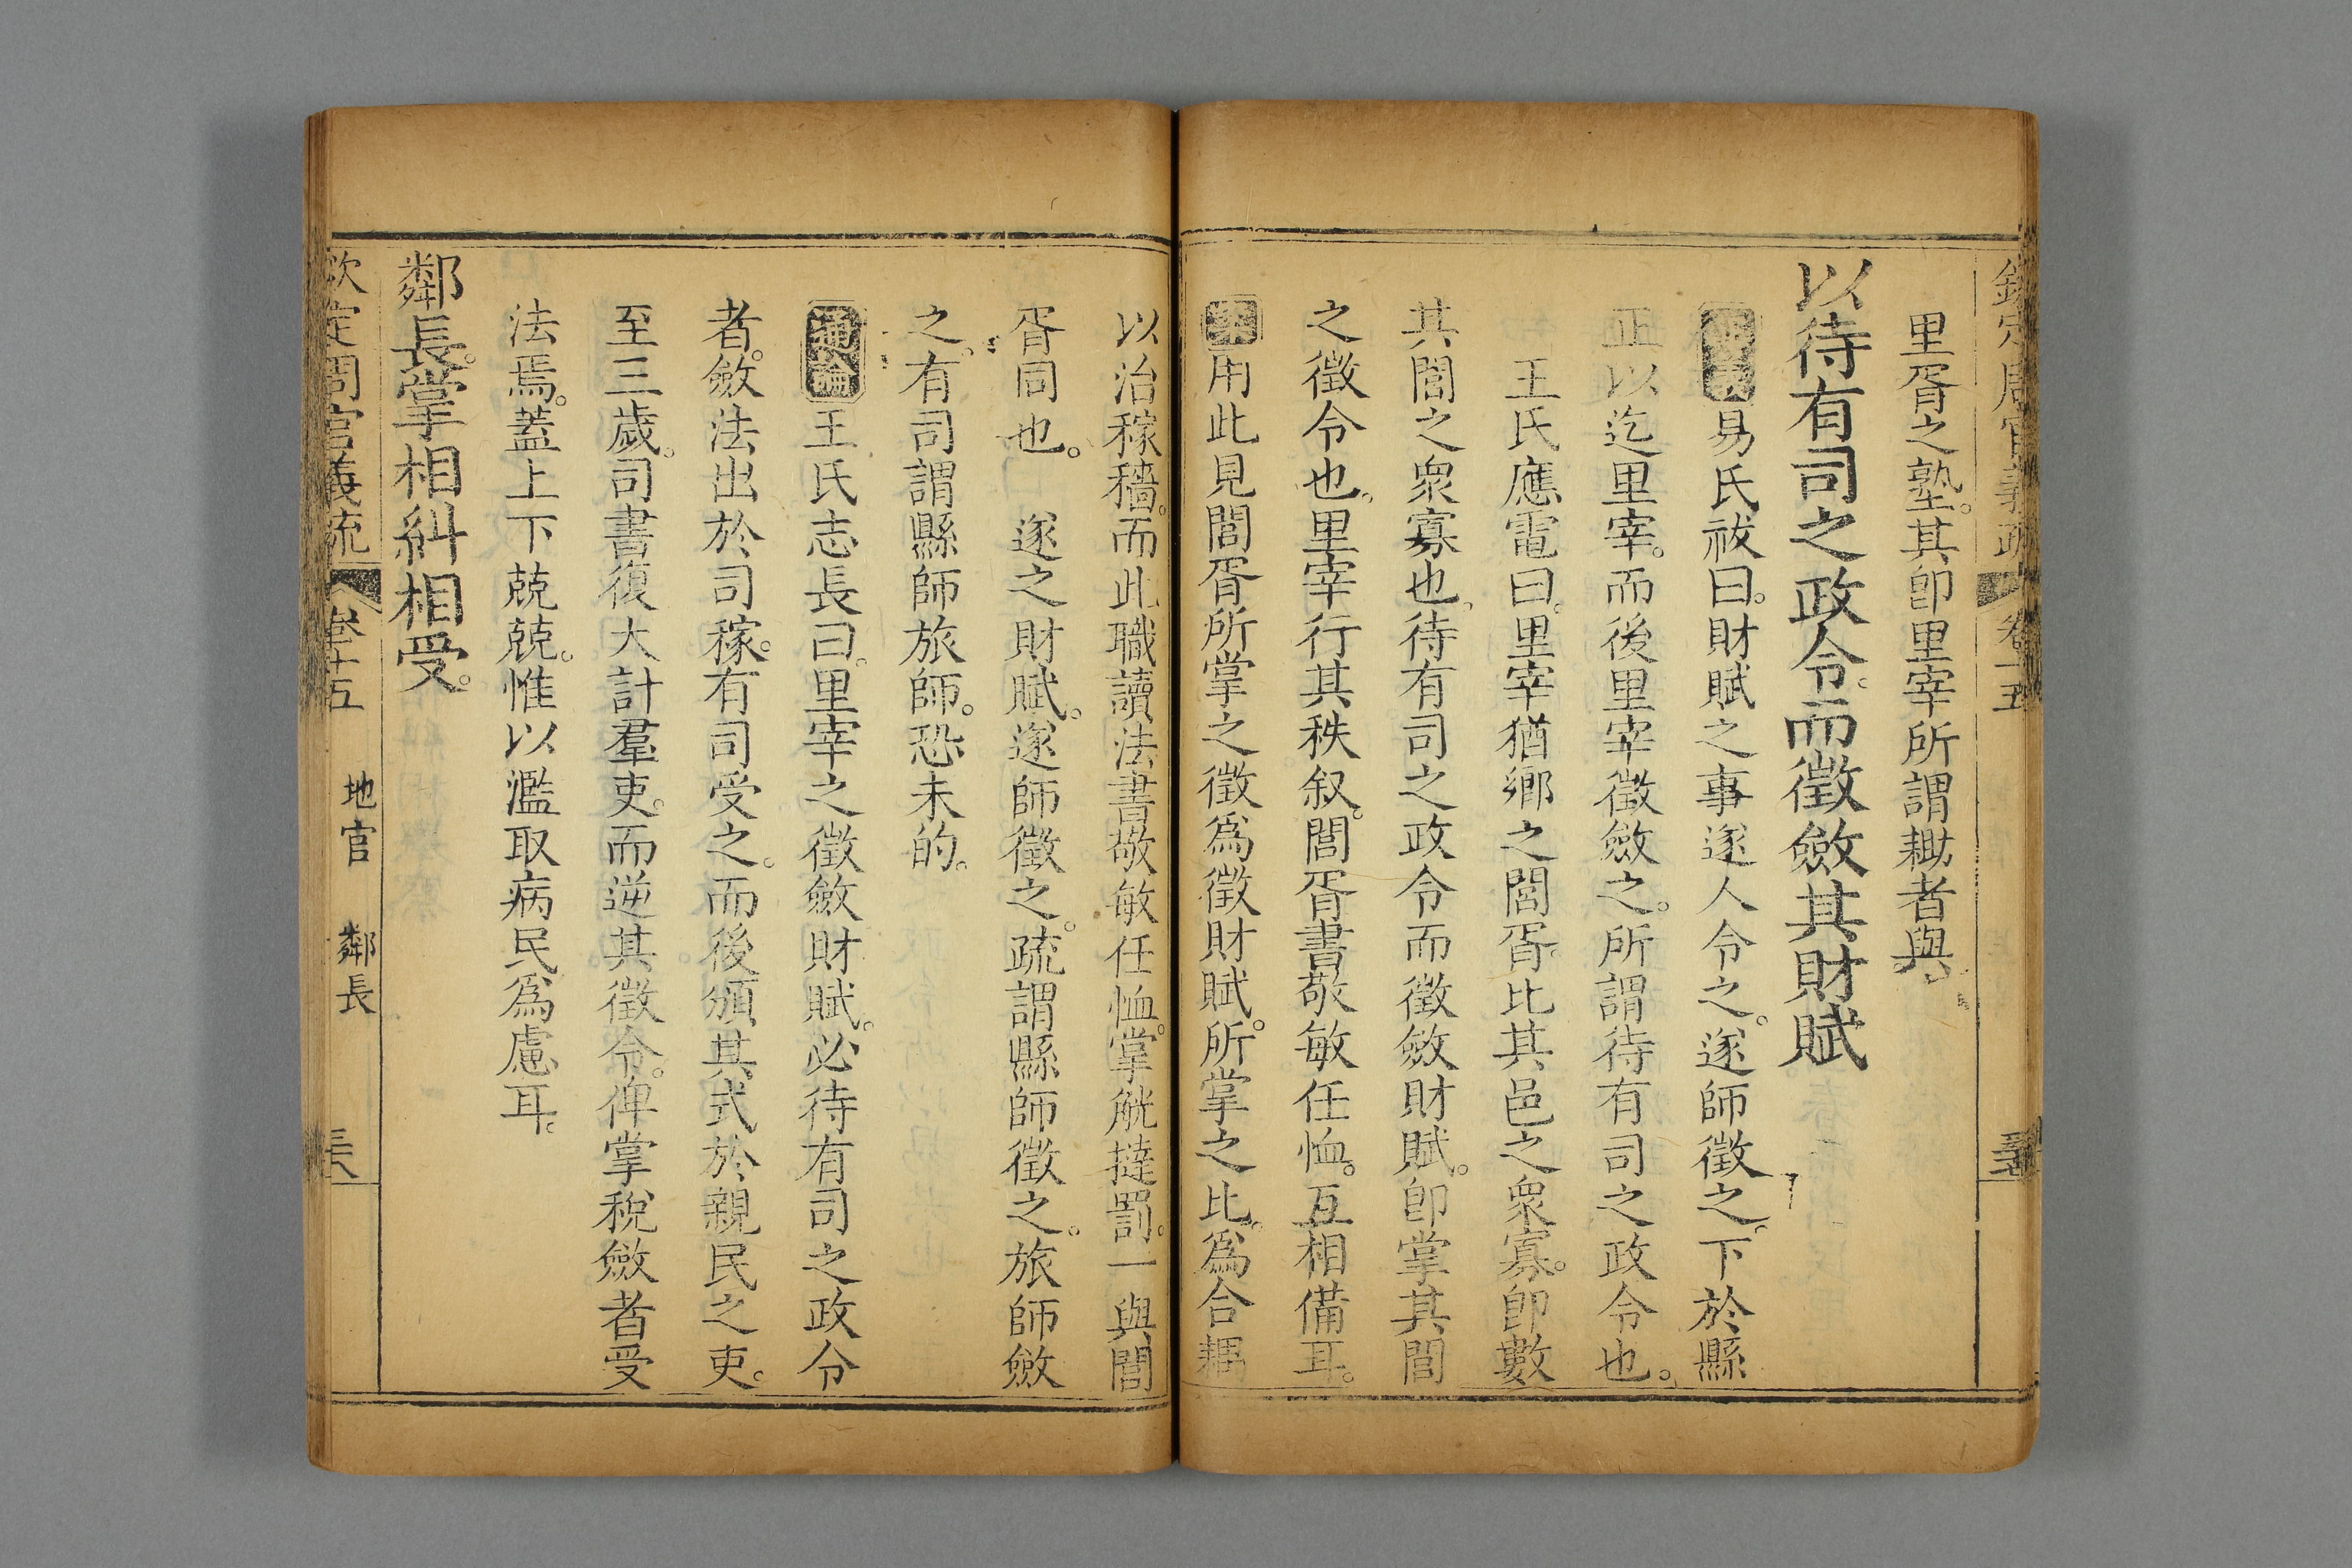 欽定周官義疏 卷十五
里胥之塾。其卽里宰所謂耡者與
以待有司之政令。而徵斂其財賦
易氏祓曰。財賦之事遂人令之。遂師徵之。下於縣
正以迄里宰。而後里宰徵斂之。所謂待有司之政令也。
王氏應電曰。里宰猶鄉之閭胥。比其邑之衆寡。卽數
其閭之衆寡也。待有司之政令而徵斂財賦。卽掌其閭
之徵令也。里宰行其秩叙。閭胥書敬敏任恤。互相備耳。
案用此見閭胥所掌之徵爲徵財賦。所掌之比。爲合耦
以治稼穡。而此職讀法書敬敏任恤。掌觥撻罰。一與閭
胥同也。 遂之財賦。遂師徵之。疏謂縣師徵之。旅師斂
之。有司謂縣師旅師。恐未的。
通論王氏志長曰。里宰之徵斂財賦。必待有司之政令
者。斂法出於司稼。有司受之。而後頒其式於親民之吏。
至三歲。司書復大計羣吏。而逆其徵令。俾掌稅斂者受
法焉。蓋上下兢兢。惟以濫取病民爲慮耳。
鄰長。掌相糾相受。
欽定周官義疏 卷十五 地官 鄰長 三八